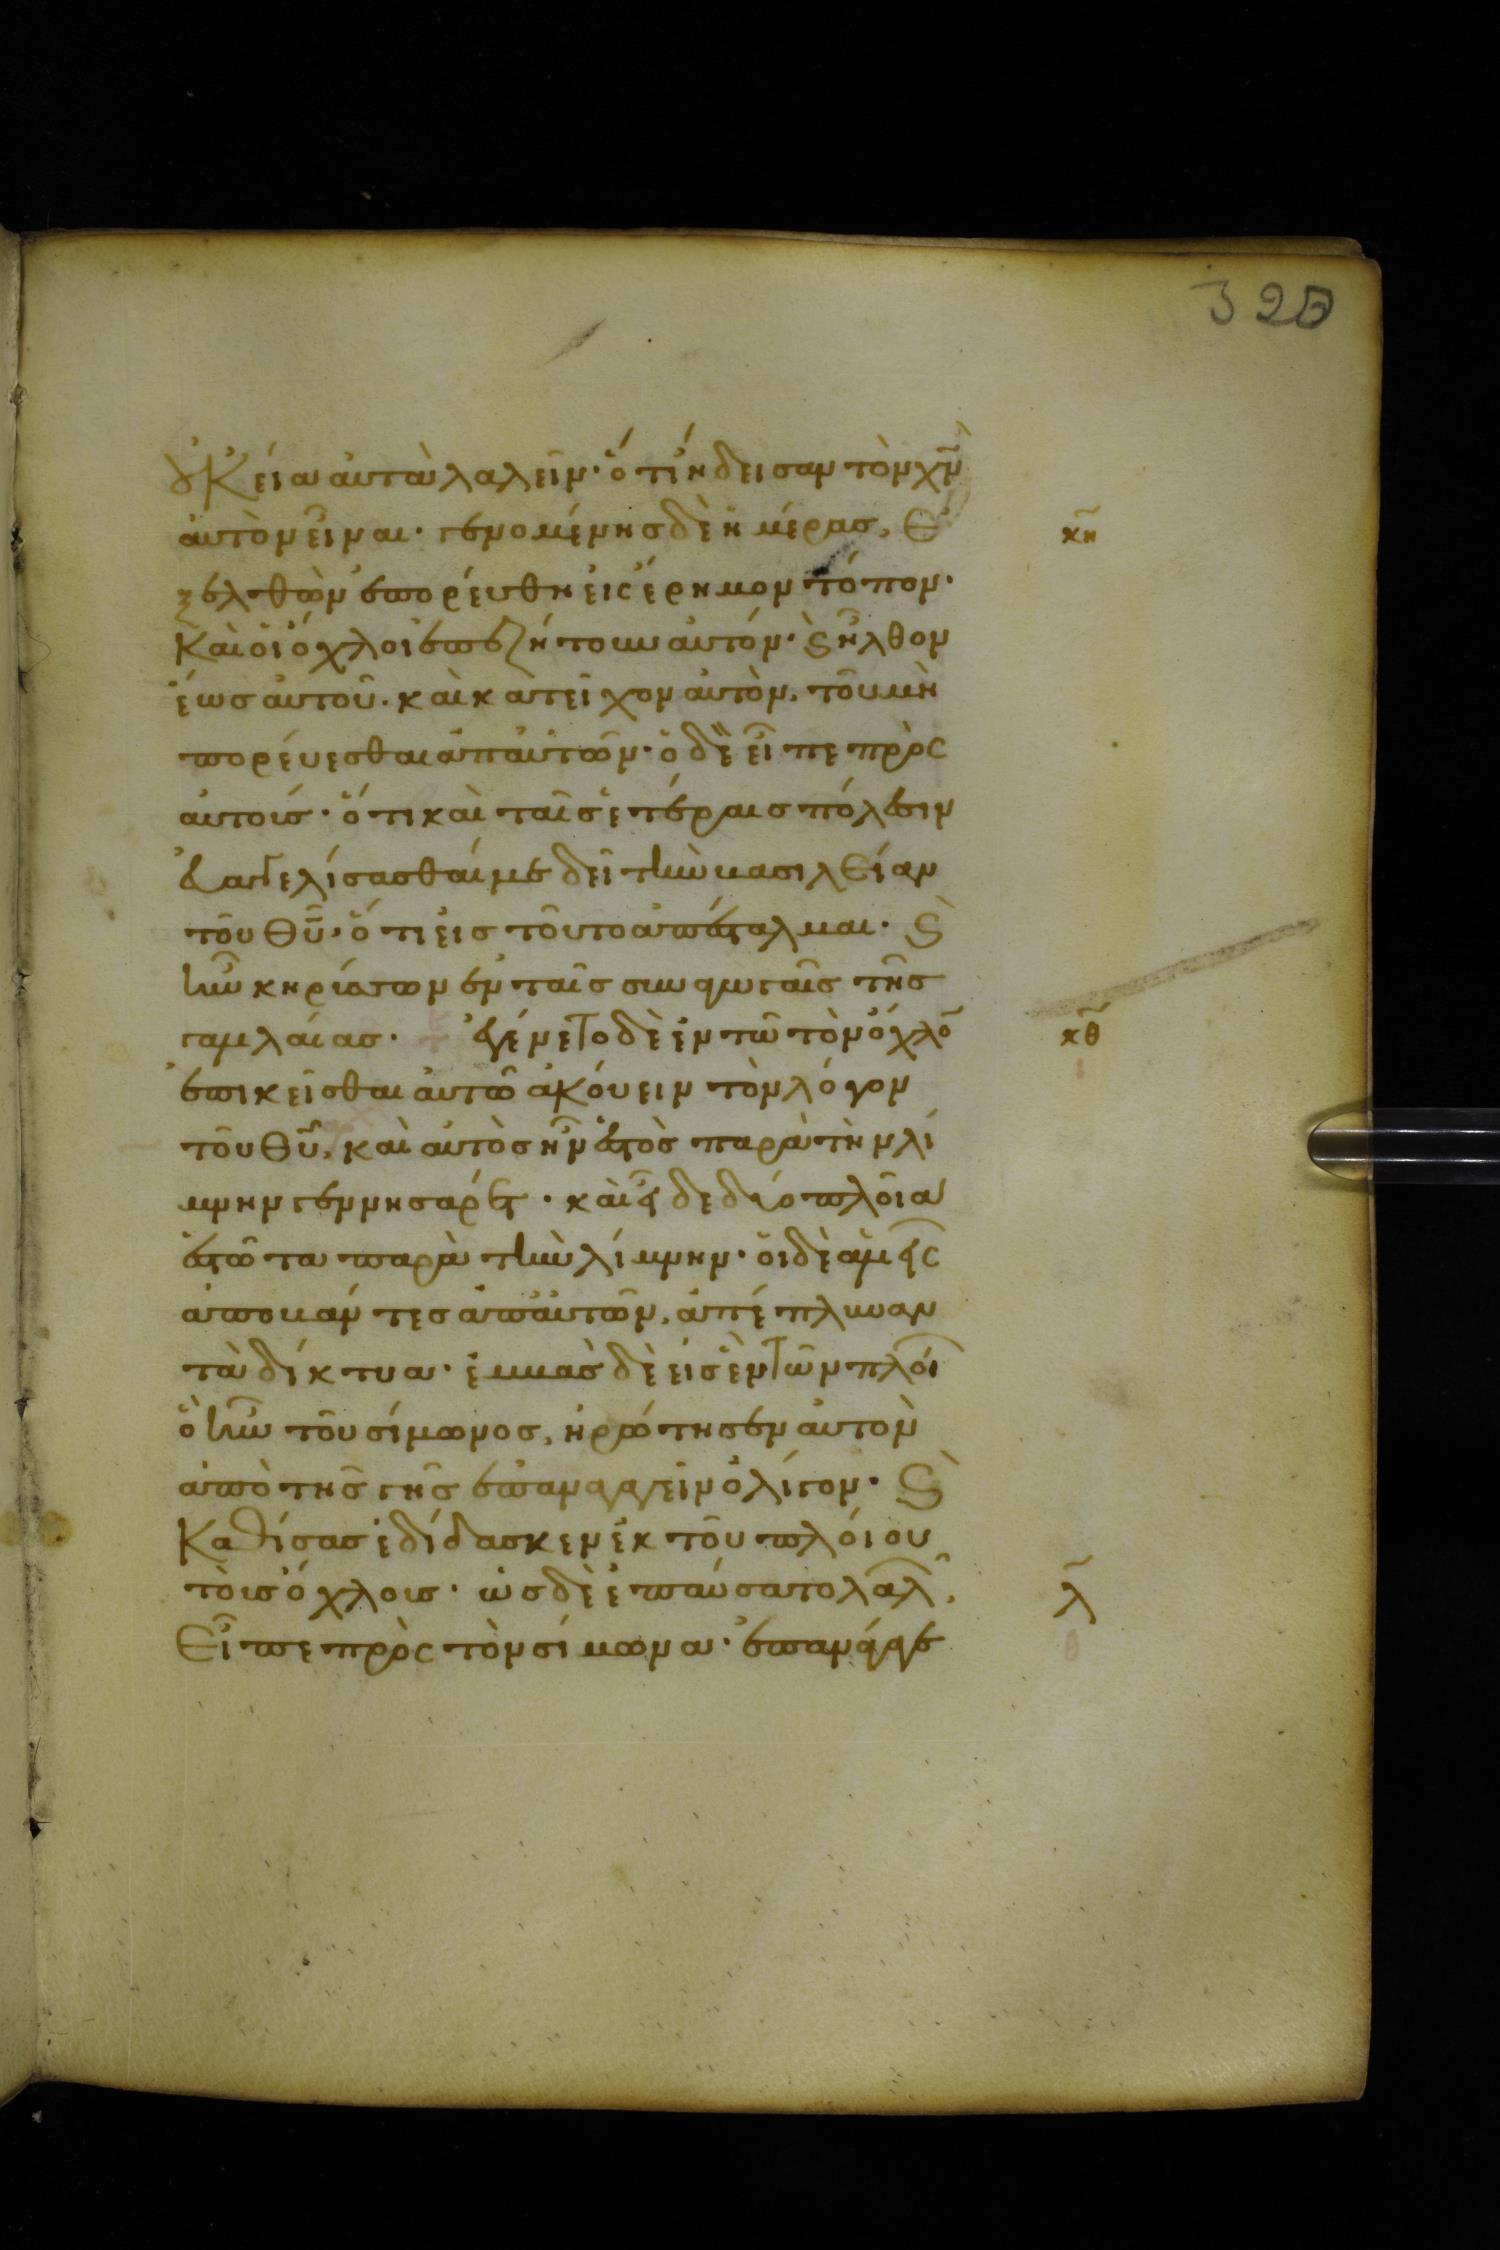 320
οὐκ εἴα αὐτὰ λαλεῖν· ὅτι ἤδεισαν τὸν χ̅ν̅
αὐτὸν εἶναι· γενομένης δὲ ἡμέρας, ἐ κη
ξελθὼν ἐπορεύθη εἰς ἔρημον τόπον·
Καὶ οἱ ὄχλοι ἐπεζήτουν αὐτόν· ϗ ἦλθον
ἕως αὐτοῦ· καὶ κατεῖχον αὐτὸν, τοῦ μὴ
πορεύεσθαι ἀπ αὐτῶν· ὁ δὲ εἶπε πρὸς
αὐτούς· ὅτι καὶ ταῖς ἑτέραις πόλεσιν
εὐαγγελίσασθαί με δεῖ τὴν βασιλείαν
τοῦ θ̅υ̅· ὅτι εἰς τοῦτο ἀπέσταλμαι· ϗ
ἦν κηρύσσων ἐν ταῖς συναγωγαῖς τῆς
γαλιλαίας· ἐγένετο δὲ ἐν τῶ τὸν ὄχλο κθ
ἐπικεῖσθαι αὐτῶ ἀκούειν τὸν λόγον
τοῦ θ̅υ̅, καὶ αὐτὸς ἦν ἑστὸς παρὰ τὴν λί
μνην γεννησαρέτ· καὶ εἶδε δύο πλοῖα
ἑστῶτα παρὰ τὴν λίμνην· οἱ δὲ ἁλιεῖς
ἀποβάντες ἀπ αὐτῶν, ἀπέπλυναν
τὰ δίκτυα· ἐμβὰς δὲ εἰς ἓν τῶν πλοί
ὃ ἦν τοῦ σίμωνος, ἠρώτησεν αὐτὸν
ἀπὸ τῆς γῆς ἐπαναγαγεῖν ὀλίγον· ϗ
Καθίσας ἐδίδασκεν ἐκ τοῦ πλοίου
τοὺς ὄχλους· ὡς δὲ ἐπαύσατο λαλ, λ
Εἶπε πρὸς τὸν σίμωνα· ἐπανάγαγε